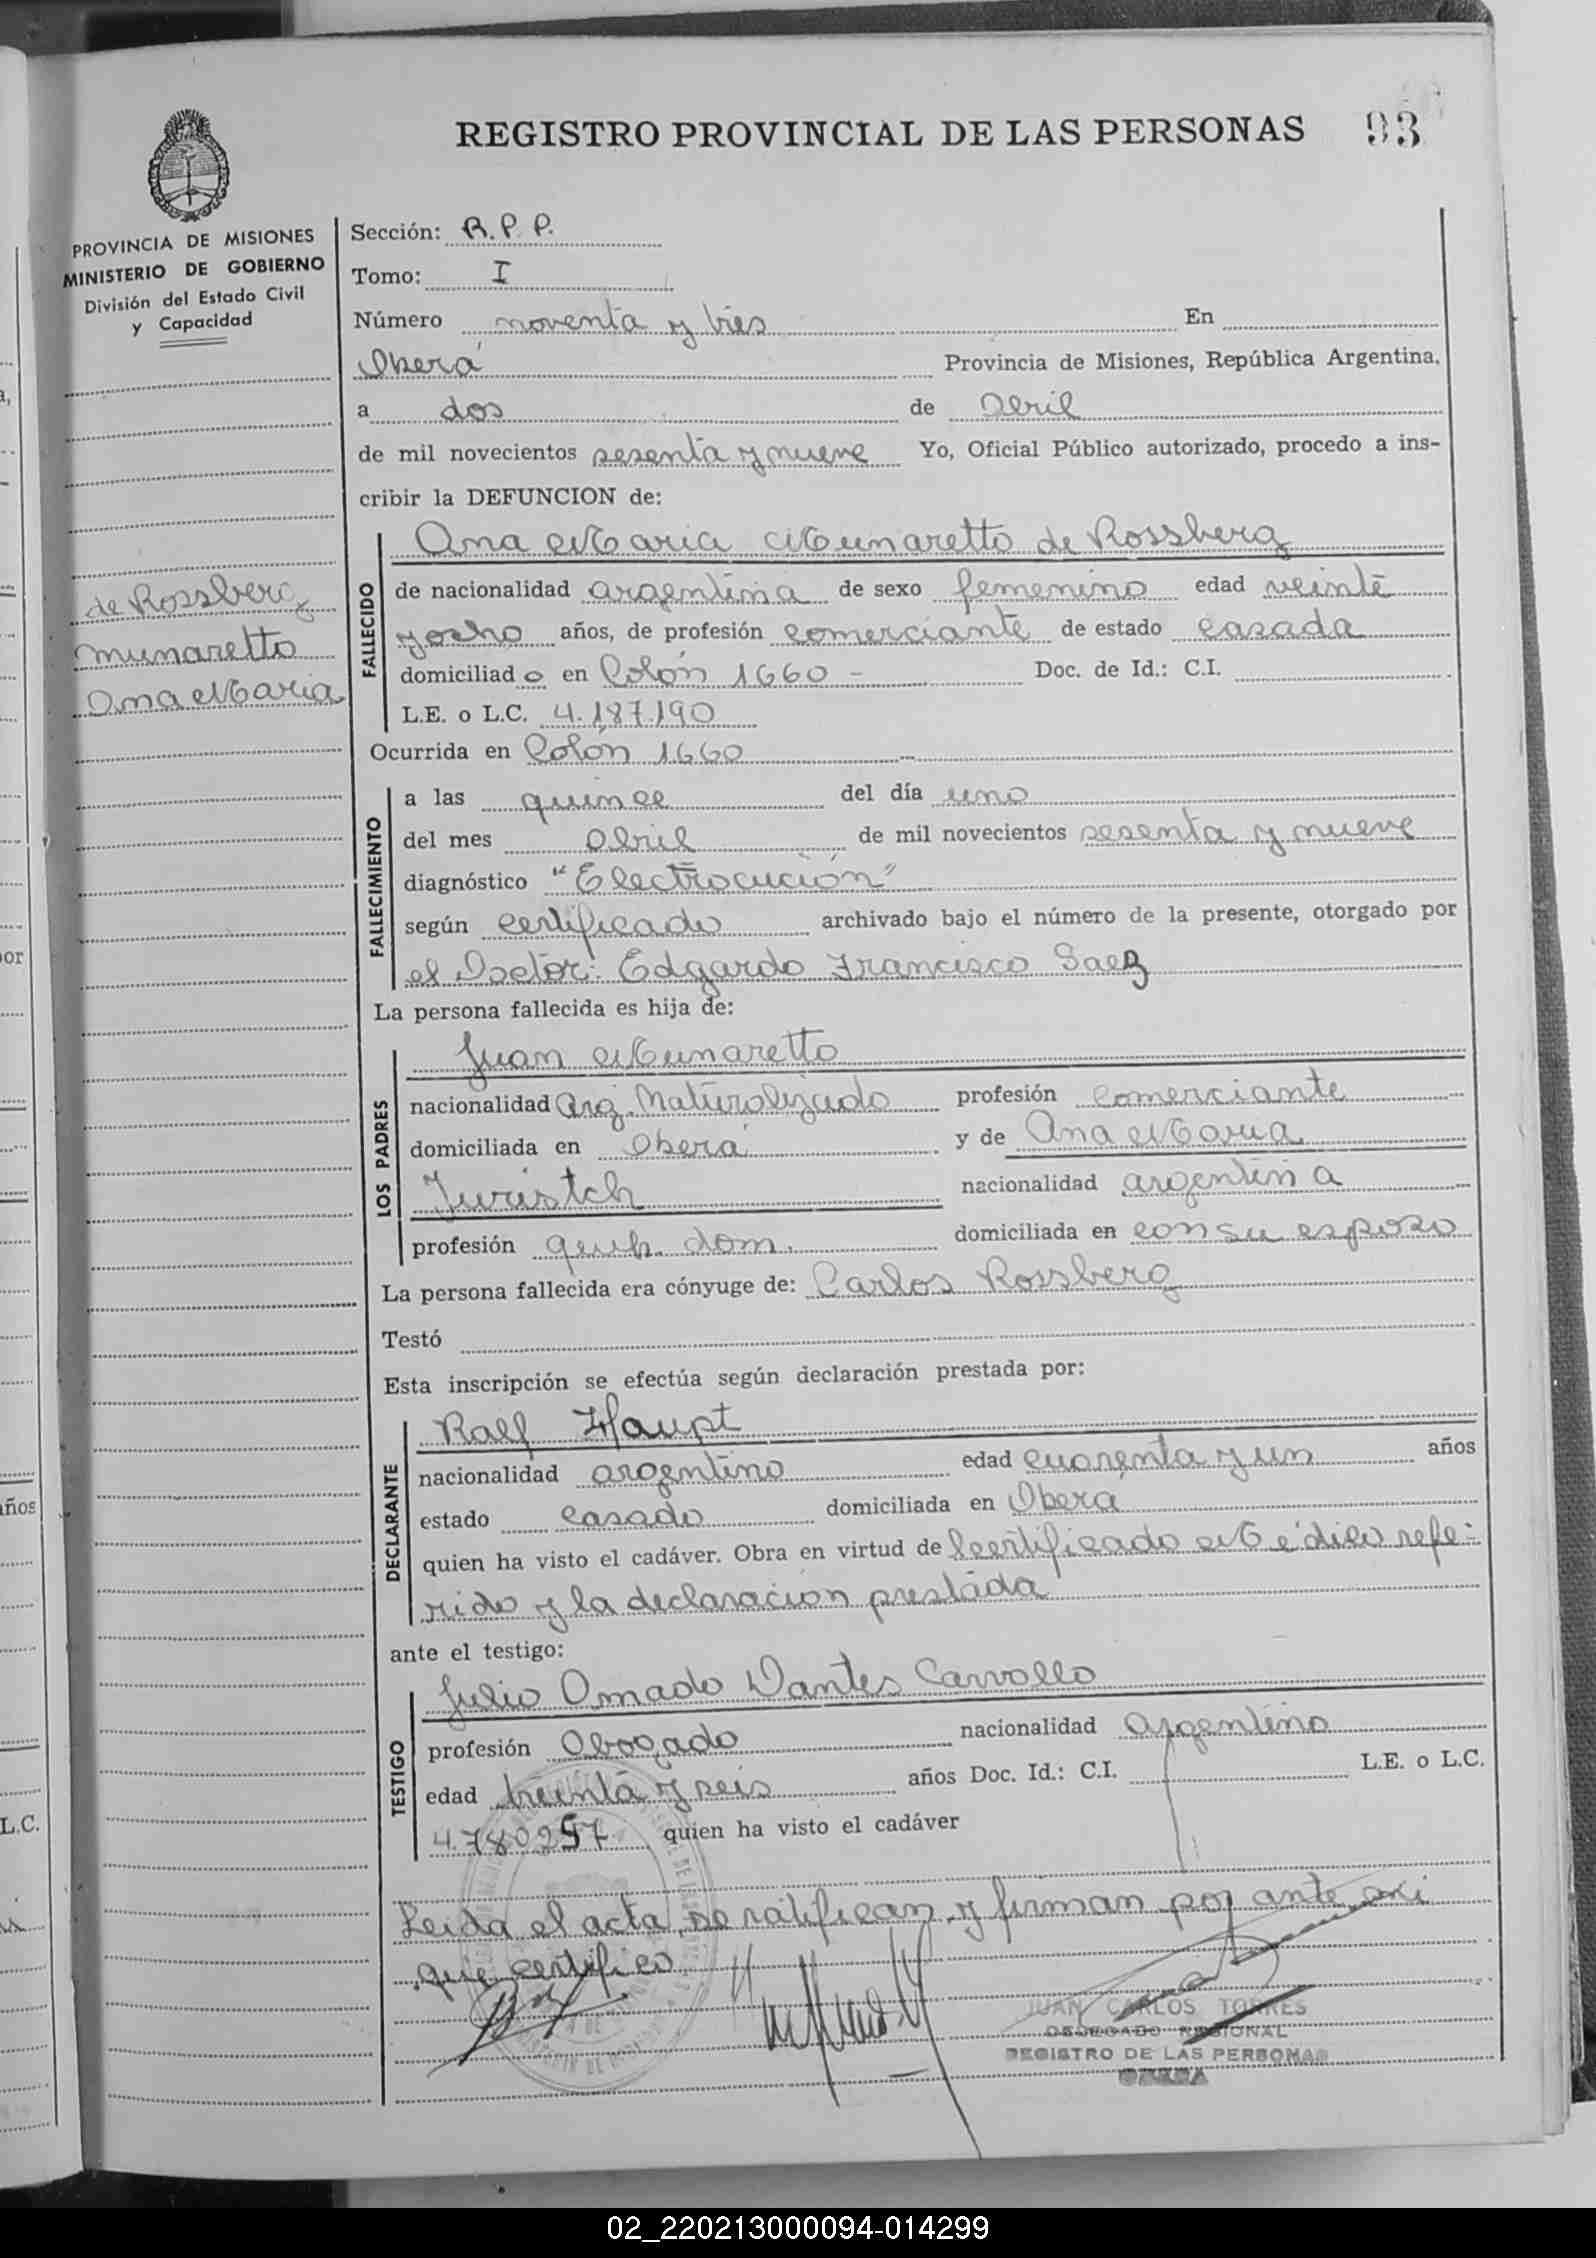 REGISTRO PROVINCIAL DE LAS PERSONAS 93
PROVINCIA DE MISIONES
MINISTERIO DE GOBIERNO
División del Estado Civil
y Capacidad
de Rossberg
Munaretto
Ana Maria
Sección: R.P.P.
Tomo: I
Número noventa y tres En
Oberá Provincia de Misiones, República Argentina,
a dos de Abril
de mil novecientos sesenta y nueve Yo, Oficial Público autorizado, procedo a ins-
cribir la DEFUNCION de:
FALLECIDO
Ana Maria Munaretto de Rossberg
de nacionalidad argentina de sexo femenino edad veinte
y ocho años, de profesión comerciante de estado casada
domiciliado en Colón 1660 - Doc. de Id.: C.I.
L.E. o L.C. 4.187.190
Ocurrida en Colón 1660
FALLECIMIENTO
a las quince del día uno
del mes Abril de mil novecientos sesenta y nueve
diagnóstico "Electrocución"
según certificado archivado bajo el número de la presente, otorgado por
el Doctor: Edgardo Francisco Saez
La persona fallecida es hija de:
LOS PADRES
Juan Munaretto
nacionalidad Arg. Naturalizado profesión comerciante
domiciliada en Oberá y de Ana Maria
Juristch nacionalidad argentina
profesión queh. dom. domiciliada en con su esposo
La persona fallecida era cónyuge de: Carlos Rossberg
Testó
Esta inscripción se efectúa según declaración prestada por:
DECLARANTE
Ralf Haupt
nacionalidad argentino edad cuarenta y un años
estado casado domiciliada en Oberá
quien ha visto el cadáver. Obra en virtud de certificado Médico refe-
rido y la declaración prestada
ante el testigo:
TESTIGO
Julio Amado Dantes Carvollo
profesión Abogado nacionalidad argentino
edad treinta y seis años Doc. Id.: C.I. L.E. o L.C.
4.780257 quien ha visto el cadáver
Leida el acta, se ratifican y firman por ante mi
que certifico
JUAN CARLOS TORRES
DELEGADO REGIONAL
REGISTRO DE LAS PERSONAS
OBERA
L.C.
años
or
02_220213000094-014299